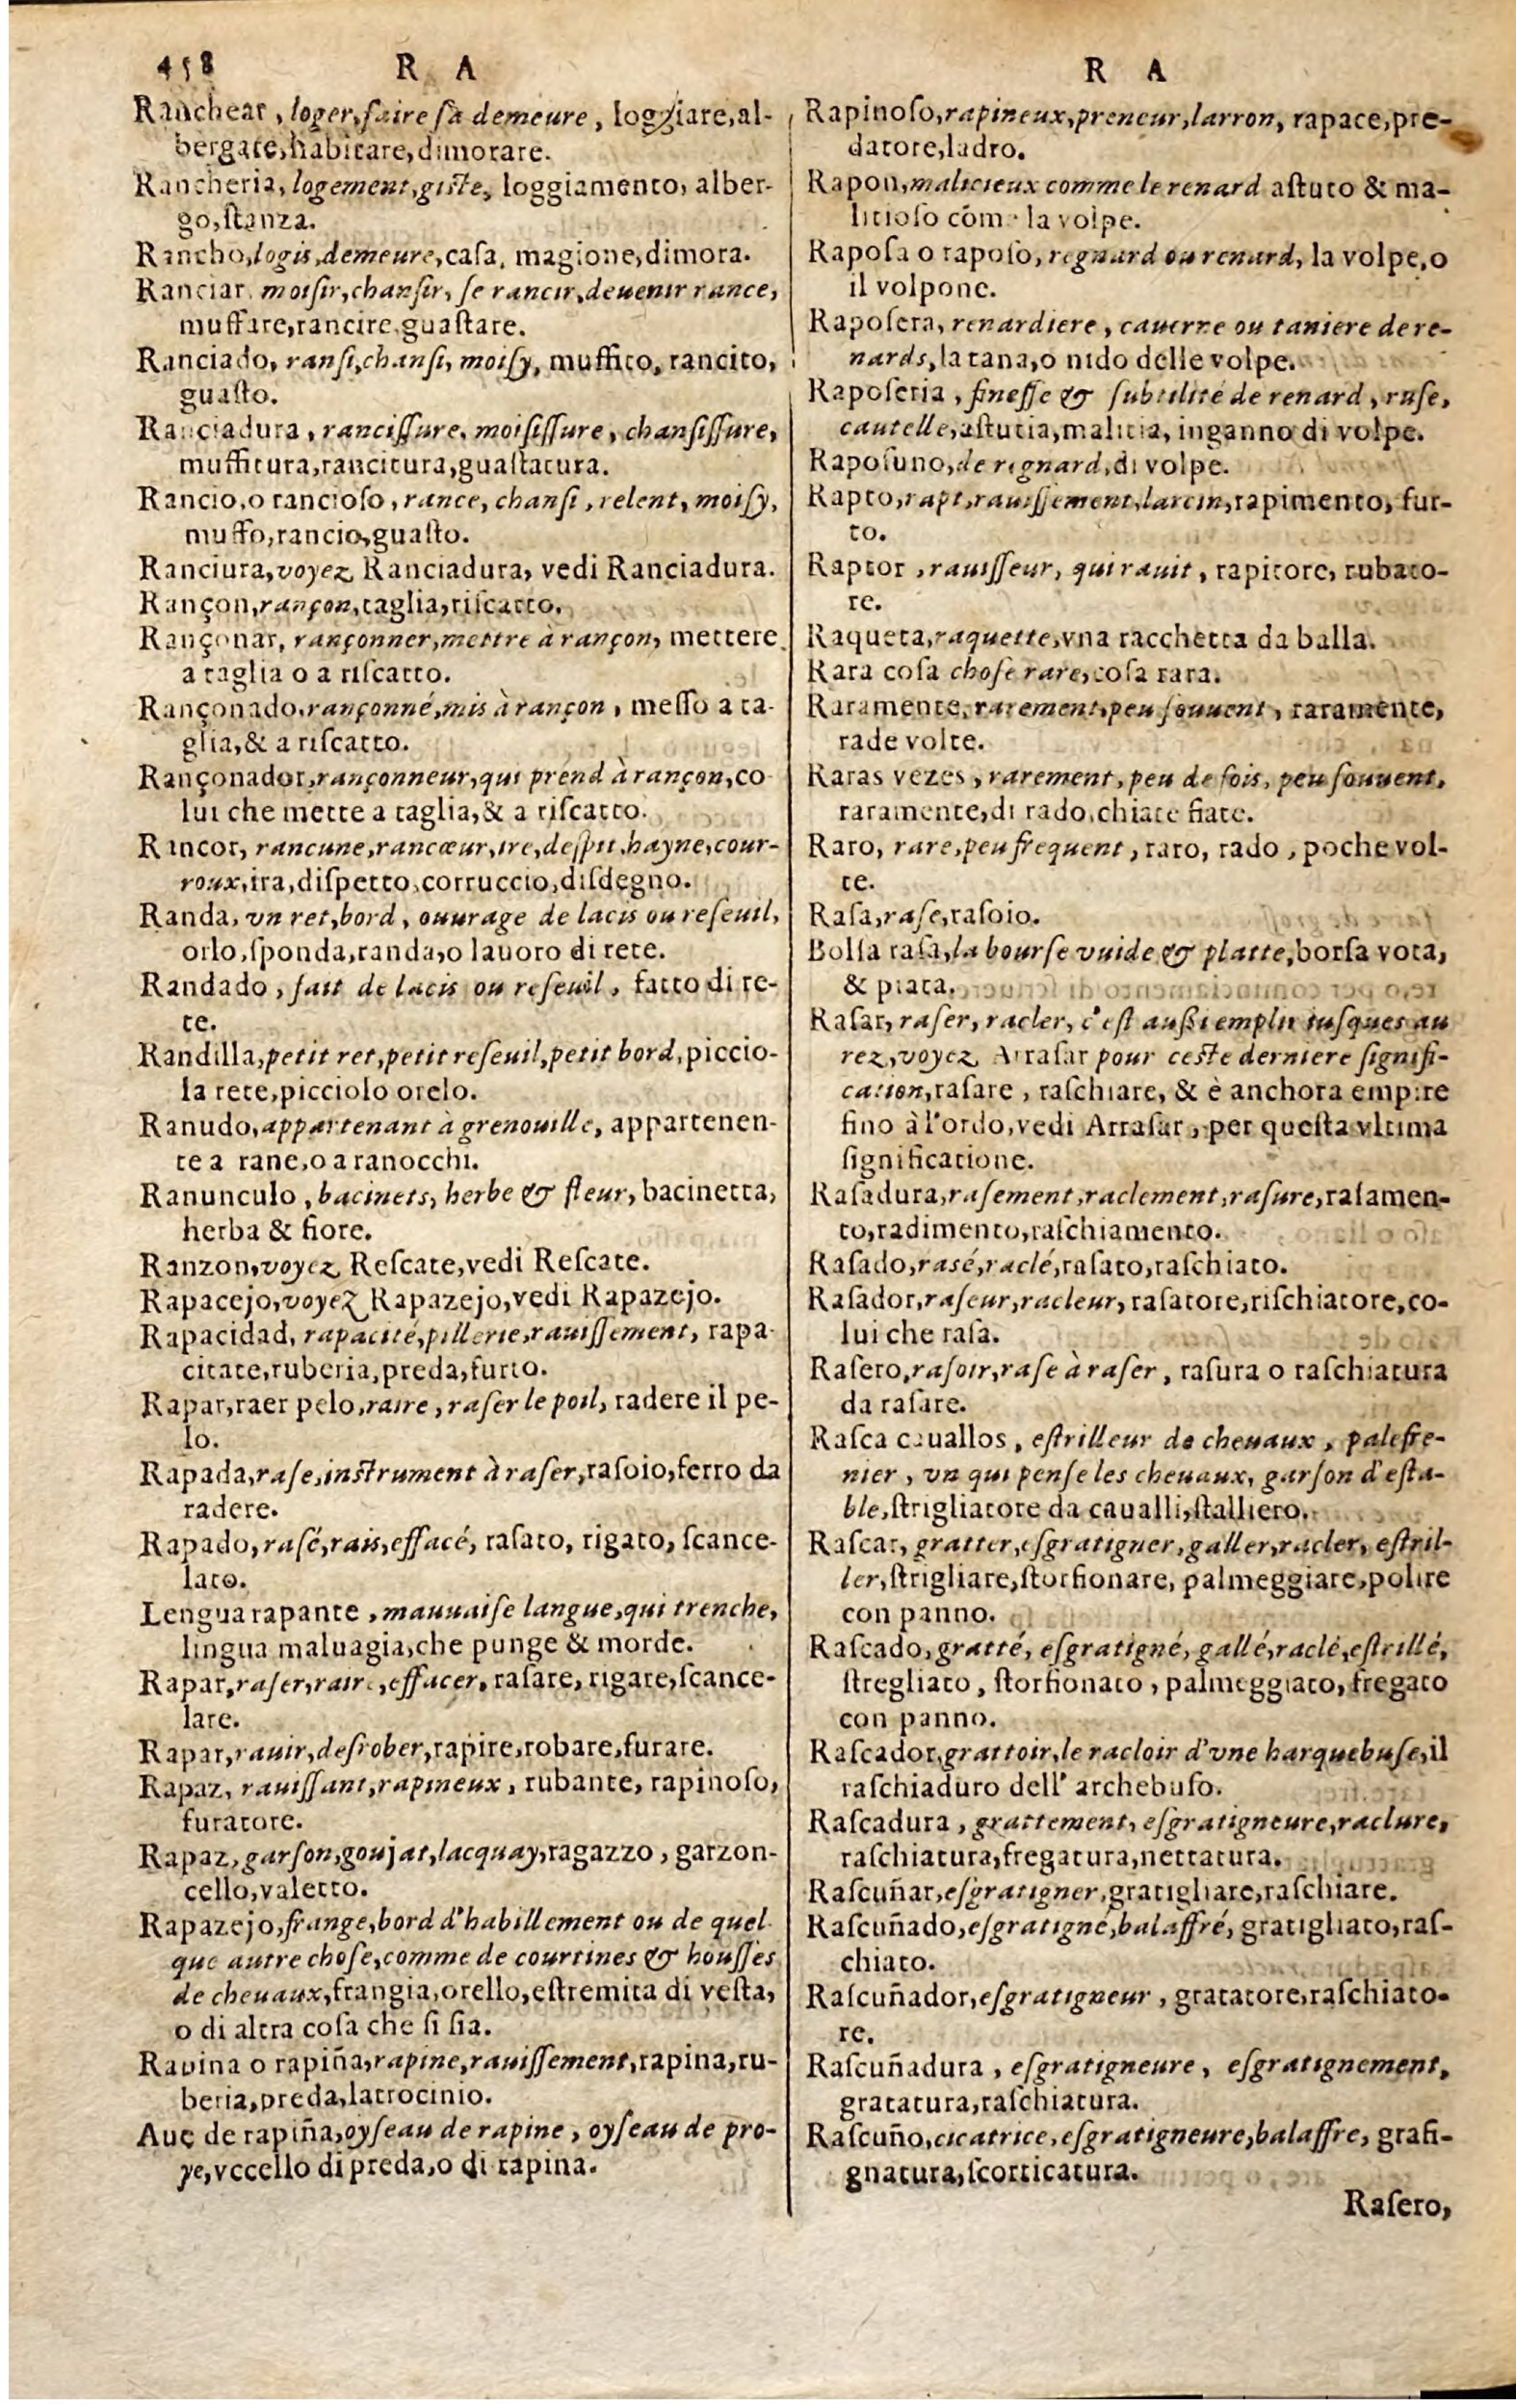 458 R A
Ranchear, loger, faire sa demeure, loggiare, al-
bergare, habitare, dimorare.
Rancheria, logement, giste, loggiamento, alber-
go, ſtanza.
Rancho, logis, demeure, caſa, magione, dimora.
Ranciar, moiſir, chanſir, ſe rancir, deuenir rance,
muffare, rancire, guaſtare.
Ranciado, ranſi, chanſi, moiſy, muffito, rancito,
guaſto.
Ranciadura, ranciſſure, moiſiſſure, chanſiſſure,
muffitura, rancitura, guaſtatura.
Rancio, o rancioſo, rance, chanſi, relent, moiſy,
muffo, rancio, guaſto.
Ranciura, voyez Ranciadura, vedi Ranciadura.
Rançon, rançon, taglia, riſcatto.
Rançonar, rançonner, mettre à rançon, mettere
a taglia o a riſcatto.
Rançonado, rançonné, mis à rançon, meſſo a ta-
glia, & a riſcatto.
Rançonador, rançonneur, qui prend à rançon, co
lui che mette a taglia, & a riſcatto.
Rancor, rancune, rancœur, ire, deſpit, hayne, cour-
roux, ira, diſpetto, corruccio, diſdegno.
Randa, vn ret, bord, ouurage de lacis ou reſeuil,
orlo, ſponda, randa, o lauoro di rete.
Randado, fait de lacis ou reſeuil, fatto di re-
te.
Randilla, petit ret, petit reſeuil, petit bord, piccio-
la rete, picciolo orelo.
Ranudo, appartenant à grenouille, appartenen-
te a rane, o a ranocchi.
Ranunculo, bacinets, herbe & fleur, bacinetta,
herba & fiore.
Ranzon, voyez Reſcate, vedi Reſcate.
Rapacejo, voyez Rapazejo, vedi Rapazejo.
Rapacidad, rapacité, pillerie, rauiſſement, rapa
citate, ruberia, preda, furto.
Rapar, raer pelo, raire, raſer le poil, radere il pe-
lo.
Rapada, raſe, inſtrument à raſer, raſoio, ferro da
radere.
Rapado, raſé, rais, effacé, raſato, rigato, ſcance-
lato.
Lengua rapante, mauuaiſe langue, qui trenche,
lingua maluagia, che punge & morde.
Rapar, raſer, raire, effacer, raſare, rigare, ſcance-
lare.
Rapar, rauir, deſrober, rapire, robare, furare.
Rapaz, rauiſſant, rapineux, rubante, rapinoſo,
furatore.
Rapaz, garſon, goujat, lacquay, ragazzo, garzon-
cello, valetto.
Rapazejo, frange, bord d'habillement ou de quel
que autre choſe, comme de courtines & houſſes
de cheuaux, frangia, orello, eſtremita di veſta,
o di altra coſa che ſi ſia.
Rapina o rapiña, rapine, rauiſſement, rapina, ru-
beria, preda, latrocinio.
Aue de rapiña, oyſeau de rapine, oyſeau de pro-
ye, vccello di preda, o di rapina.
R A
Rapinoſo, rapineux, preneur, larron, rapace, pre-
datore, ladro.
Rapon, malicieux comme le renard aſtuto & ma-
litioſo cõme la volpe.
Rapoſa o rapoſo, regnard ou renard, la volpe, o
il volpone.
Rapoſera, renardiere, cauerne ou taniere de re-
nards, la tana, o nido delle volpe.
Rapoſeria, fineſſe & ſubtilité de renard, ruſe,
cautelle, aſtutia, malitia, inganno di volpe.
Rapoſuno, de regnard, di volpe.
Rapto, rapt, rauiſſement, larcin, rapimento, fur-
to.
Raptor, rauiſſeur, qui rauit, rapitore, rubato-
re.
Raqueta, raquette, vna racchetta da balla.
Rara coſa choſe rare, coſa rara.
Raramente, rarement, peu ſouuent, raramente,
rade volte.
Raras vezes, rarement, peu de fois, peu ſouuent,
raramente, di rado, chiate fiate.
Raro, rare, peu frequent, raro, rado, poche vol-
te.
Raſa, raſe, raſoio.
Bolſa raſa, la bourſe vuide & platte, borſa vota,
& piata.
Raſar, raſer, racler, c'eſt auſſi emplir iuſques au
rez, voyez Arraſar pour ceſte derniere ſignifi-
cation, raſare, raſchiare, & è anchora empire
fino à l'ordo, vedi Arraſar, per queſta vltima
ſignificatione.
Raſadura, raſement, raclement, raſure, raſamen-
to, radimento, raſchiamento.
Raſado, raſé, raclé, raſato, raſchiato.
Raſador, raſeur, racleur, raſatore, riſchiatore, co-
lui che raſa.
Raſero, raſoir, raſe à raſer, raſura o raſchiatura
da raſare.
Raſca cauallos, eſtrilleur de cheuaux, palefre-
nier, vn qui penſe les cheuaux, garſon d'eſta-
ble, ſtrigliatore da caualli, ſtalliero.
Raſcar, gratter, eſgratigner, galler, racler, eſtril-
ler, ſtrigliare, ſtorfionare, palmeggiare, polire
con panno.
Raſcado, gratté, eſgratigné, gallé, raclé, eſtrillé,
ſtregliato, ſtorfionato, palmeggiato, fregato
con panno.
Raſcador, grattoir, le racloir d'vne harquebuſe, il
raſchiaduro dell' archebuſo.
Raſcadura, grattement, eſgratigneure, raclure,
raſchiatura, fregatura, nettatura.
Raſcuñar, eſgratigner, gratigliare, raſchiare.
Raſcuñado, eſgratigné, balaffré, gratigliato, raſ-
chiato.
Raſcuñador, eſgratigneur, gratatore, raſchiato-
re.
Raſcuñadura, eſgratigneure, eſgratignement,
gratatura, raſchiatura.
Raſcuño, cicatrice, eſgratigneure, balaffre, grafi-
gnatura, ſcorticatura.
Raſero,